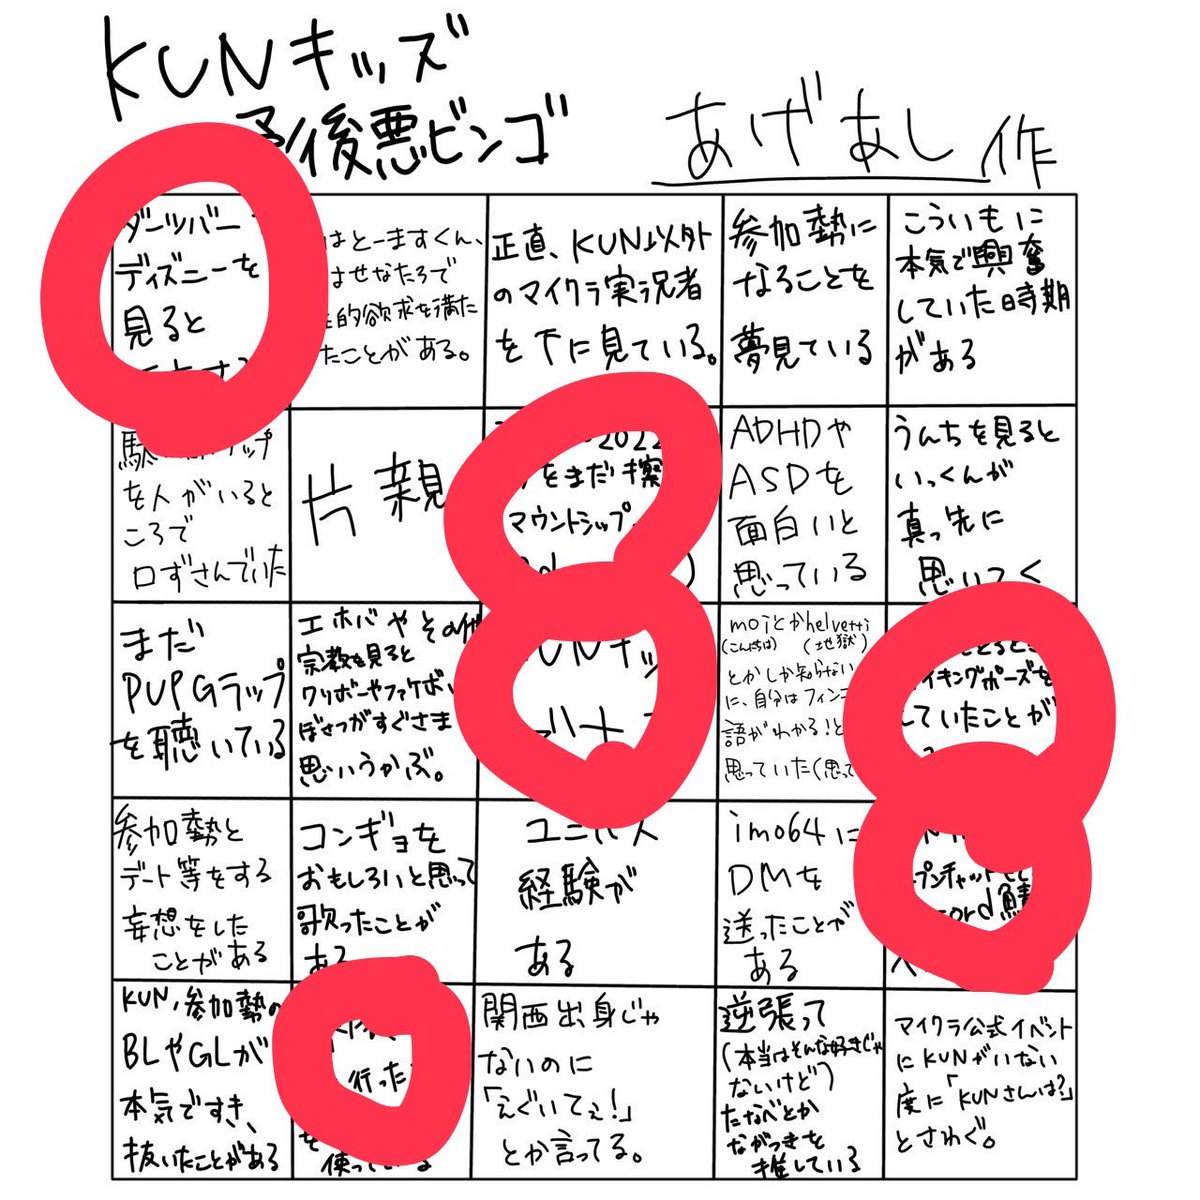 KUNキッズ
予後悪ビンゴ
あげあし作
ダーツバー
ディズニーを
見ると
はとーますくん、
はせなたろで
的欲求を満た
たことがある。
正直、KUN以外
のマイクラ実況者
を下に見ている。
参加勢に
なることを
夢見ている
こういもに
本気で興奮
していた時期
がある
ラップ
を人がいると
ころで
口ずさんでいた
片親
2022
をまだ擦
マウントシップ
ADHDや
ASDを
面白いと
思っている
うんちを見ると
いっくんが
真っ先に
思いつく
まだ
PUPGラップ
を聴いている
エホバやその他
宗教を見ると
ワリボーやファケボー
ぼさつがすぐさま
思いうかぶ。
KUNキッ
moiとかhelvetti
(こんちは) (地獄)
とかしか知らない
に、自分はフィンコ
語がわかる!と
思っていた(思って
イキングポーズを
していたことが
参加勢と
デート等をする
妄想をした
ことがある
コンギョを
おもしろいと思って
歌ったことが
ある
ユニバス
経験が
ある
imo64に
DMを
送ったことが
ある
プンチャット
cord鯖
KUN,参加勢の
BLやGLが
本気ですき、
抜いたことがある
行った
を
使っている
関西出身じゃ
ないのに
「えぐいてぇ!」
とか言ってる。
逆張って
(本当はそんな好きじゃ
ないけど)
たなべとか
ながつきを
推している
マイクラ公式イベント
にKUNがいない
度に「KUNさんは?」
とさわぐ。